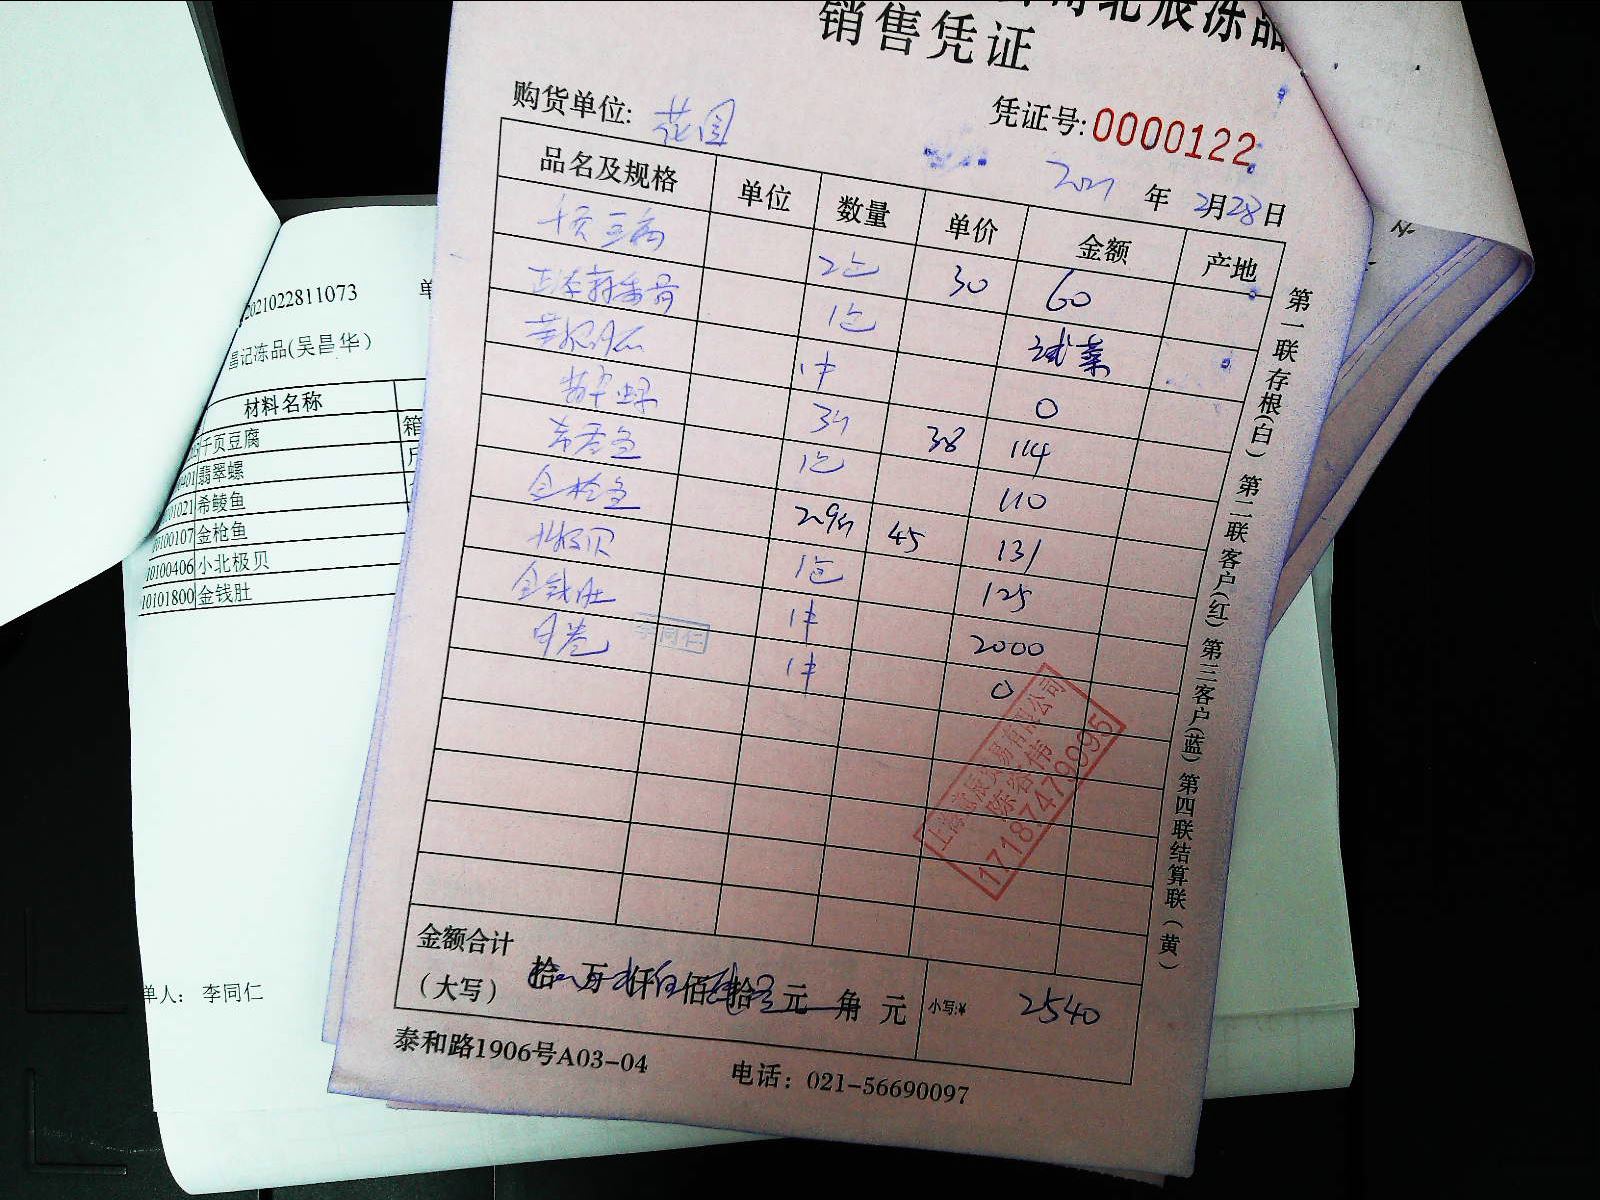 海北辰冻品
销售凭证
购货单位: 花园
凭证号: 0000122
2021 年 2月28日
品名及规格 单位 数量 单价 金额 产地
千页豆腐 2包 30 60
1包 试菜
1件 0
翡翠螺 3斤 38 114
希鲮鱼 1包 110
金枪鱼 2.9斤 45 131
北极贝 1包 125
金钱肚 1件 2000
1件 0
李同仁
陈容伟
17187479995
金额合计
(大写) 拾 万 仟 佰 拾 元 角 元 小写:¥ 2540
泰和路1906号A03-04 电话: 021-56690097
第一联存根(白) 第二联客户(红) 第三客户(蓝) 第四联结算联(黄)
2021022811073 单
昌记冻品(吴昌华)
材料名称
千页豆腐 箱
401 翡翠螺 斤
01021 希鲮鱼
00100107 金枪鱼
10100406 小北极贝
10101800 金钱肚
单人: 李同仁